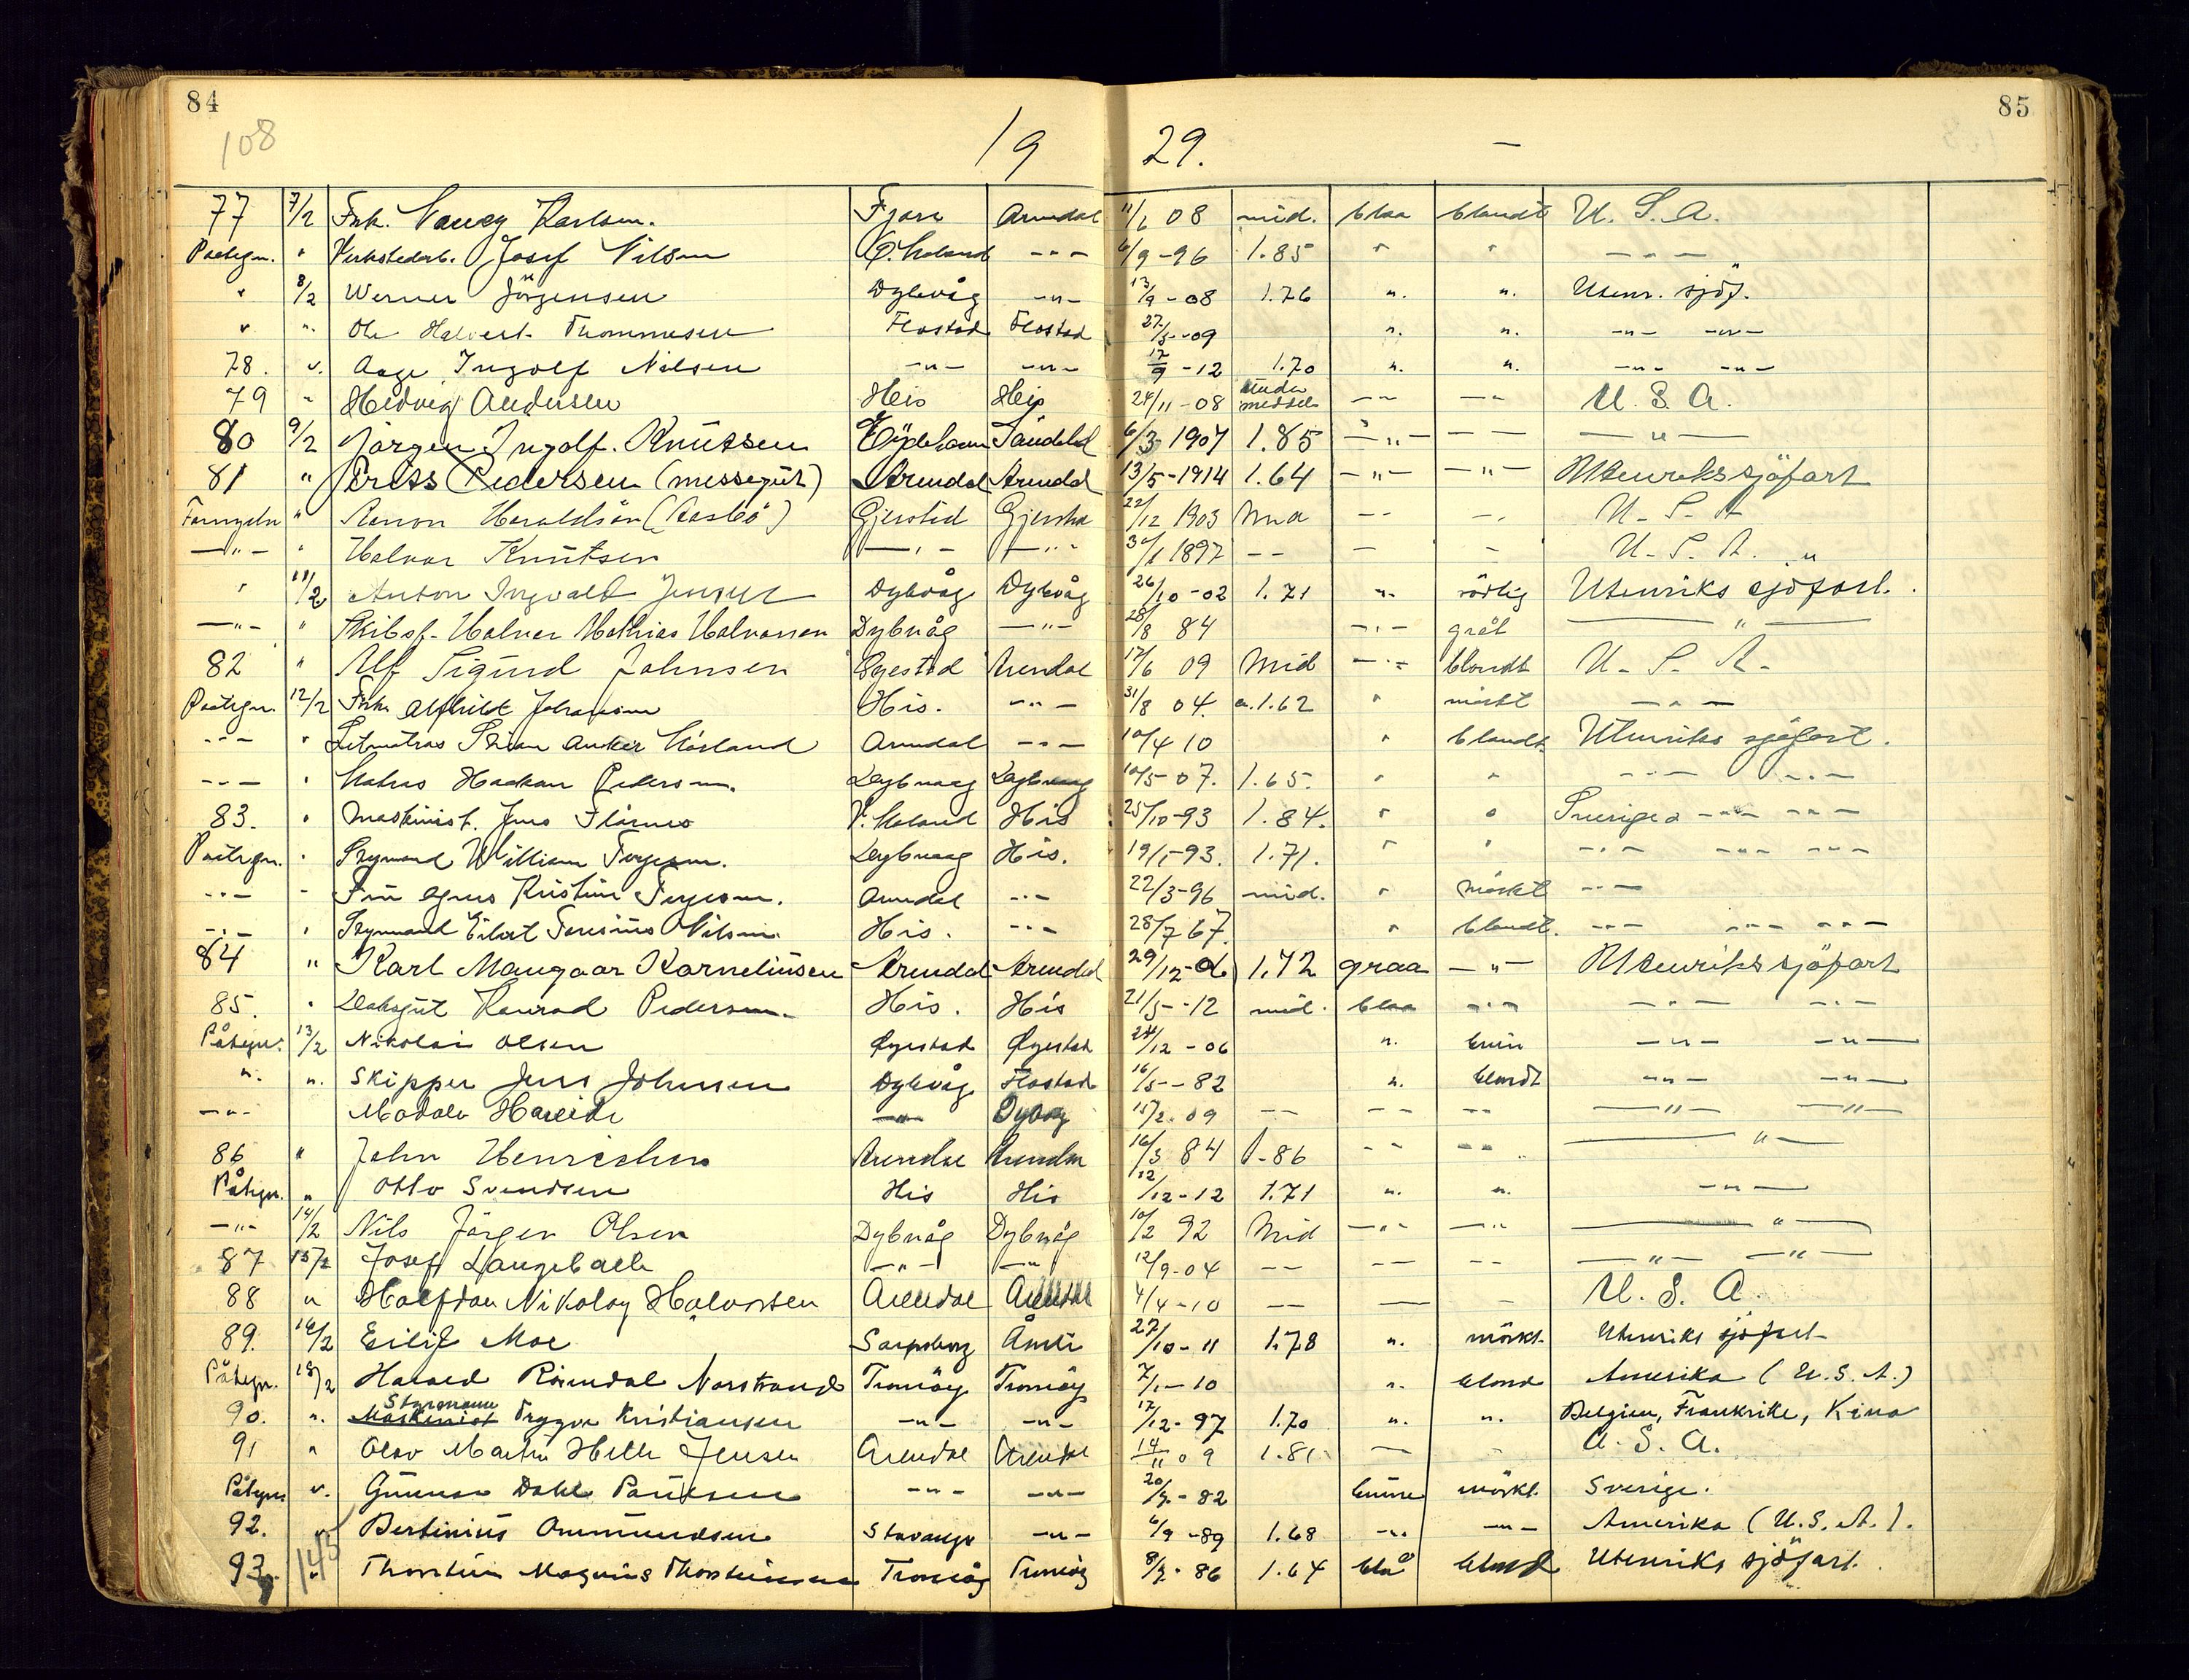 84
85
108
19 29. —
77 7/2 Frk. Nancy Karlsen. Fjære Arendal 11/6 08 mid. blaa blondt U. S. A.
Paategn. " Verkstedarb. Josef Nilsen Ø. Moland -"- 6/9 -96 1.85 " " -"-
" 8/2 Werner Jörgensen Dybvåg -"- 13/9 -08 1.76 ". ". Utenr. sjöf.
" ". Ole Halvert Thommesen Flostad Flostad 27/5 -09 ". ". -"- -"-
78. ". Aage Ingolf Nilsen -"- -"- 17/9 -12 1.70 ". ". -"- -"-
79 " Hedvig Andersen His His 24/11 -08 under middels -"- -"- U. S. A.
80 9/2 Jörgen Ingolf. Knutsen Eydehavn Sandeled 6/3 1907 1.85 -"- -- -"-
81 " Jens Pedersen (messegut) Arendal Arendal 13/5 -1914 1.64 -"- -"- Utenrikssjöfart
Fornyelse " Aanon Haraldsön (Aasbö) Gjerstad Gjerstad 22/12 1903 Mid -- -- U. S. A
-"- " Halvor Knutsen -"- -"- 30/1 1897 -- - - U. S. A.
" 11/2 Anton Ingvald Jensen Dybvåg Dybvåg 26/10 -02 1.71 ". rödlig Utenriks sjöfart.
-"- " Skibsf. Halvor Mathias Halvorsen Dybvåg -"- 28/8 84 -"- gråt -"-
82 " Alf Sigurd Johnsen Öyestad Arendal 17/6 09 Mid -"- blondt U. S. A.
Paategn. 12/2 Frk. Alfhild Johansen His. -"- 31/8 04. ca. 1.62 " mörkt -"-
-"- " Letmatros Stian Anker Mörland Arendal -"- 10/4 10 " blondt Utenriks sjöfart.
-"- " Matros Haakon Pedersen. Dybvaag Dybvaag 10/5 -07. 1.65. " " -"- -"-
83. " Maskinist. Jens Flörnes V. Moland His 25/10 -93 1.84. " " Sverige o -"- -"-
Paategn. " Styrmand William Terjesen. Dybvaag His. 19/1 -93. 1.71. " " -"- -"- -"-
-"- " Fru Agnes Kristine Terjesen. Arendal -"- 22/3 -96 mid. " mörkt -"-
-"- " Styrmand Eilert Severinus Nilsen. His. -"- 28/7 67. " blondt. -"- -"- -"-
84 " Karl Mangaar Kornelinsen Arendal Arendal 29/12 -06 1.72 graa -"- Utenrikssjöfart
85. " Dæksgut Konrad Pedersen. His. His 21/5 -12 mid. blaa -"- -"- -"-
Påtegn. 13/2 Nikolai Olsen Øyestad Øyestad 24/12 -06 ". brun -"- -"-
". ". Skipper Jens Johnsen Dybvåg Flostad 16/5 -82 ". blondt -"- -"-
-"- Modolv Hareide -"- Dybvåg 15/2 .09 -- -- -- -"- -"-
86 " John Henrichsen Arendal Arendal 16/3 84 1.86 -- -- -"-
Påtegn. " Otto Svendsen His His 12/12 -12 1.71 ". ". -"-
-"- 14/2 Nils Jörgen Olsen Dybvåg Dybvåg 10/2 92 Mid -"- -"- -"-
87 15/2 Josef Langebæk -"- -"- 12/9 -04 -- -- -- -"- -"-
88 " Halfdan Nikolay Halvorsen Arendal Arendal 4/4 -10 -- — - U. S. A.
89. 16/2 Eilif Moe Sarpsborg Åmli 27/10 -11 1.78 ". mörkt Utenriks sjöfart
Påtegn. 18/2 Harald Rosendal Norstrand Tromöy Tromöy 7/1 -10 ". blond Amerika (U.S.A.)
90. ". Maskinist Styrmann Trygve Kristiansen -"- -"- 17/12 -97 1.70 ". ". Belgien, Frankrike, Kina
91 " Olav Martin Helle Jensen Arendal Arendal 14/11 09 1.81 — - U. S. A.
Påtegn ". Gunnar Dahl Paulsen -"- -"- 20/9 -82 brune mörkt Sverige.
92. " Bertinius Ommundsen Stavanger -"- 6/9 -89 1.68 -"- -"- Amerika (U.S.A.).
93. " 145 Thorstein Magnus Thorsteinsen Tromöy Tromöy 8/9 -86 1.64 blå blond Utenriks sjöfart.